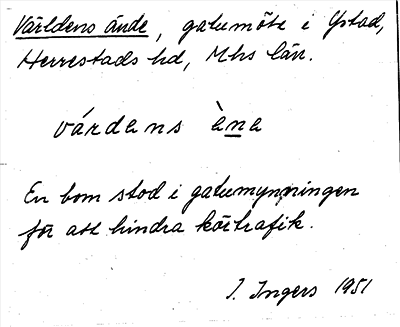 Världens ände, gatumöte i Ystad,
Herrestads hd, Mhs län.
várdens àna
En bom stod i gatumynningen
för att hindra körtrafik.
I. Ingers 1951